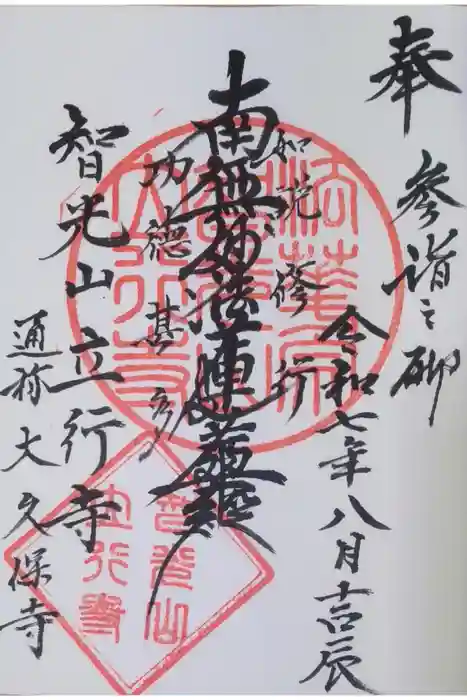 奉 参詣之砌
令和七年八月吉辰
如説修行
南無妙法蓮華経
功徳甚多
智光山立行寺
通称大久保寺
智光山
立行寺